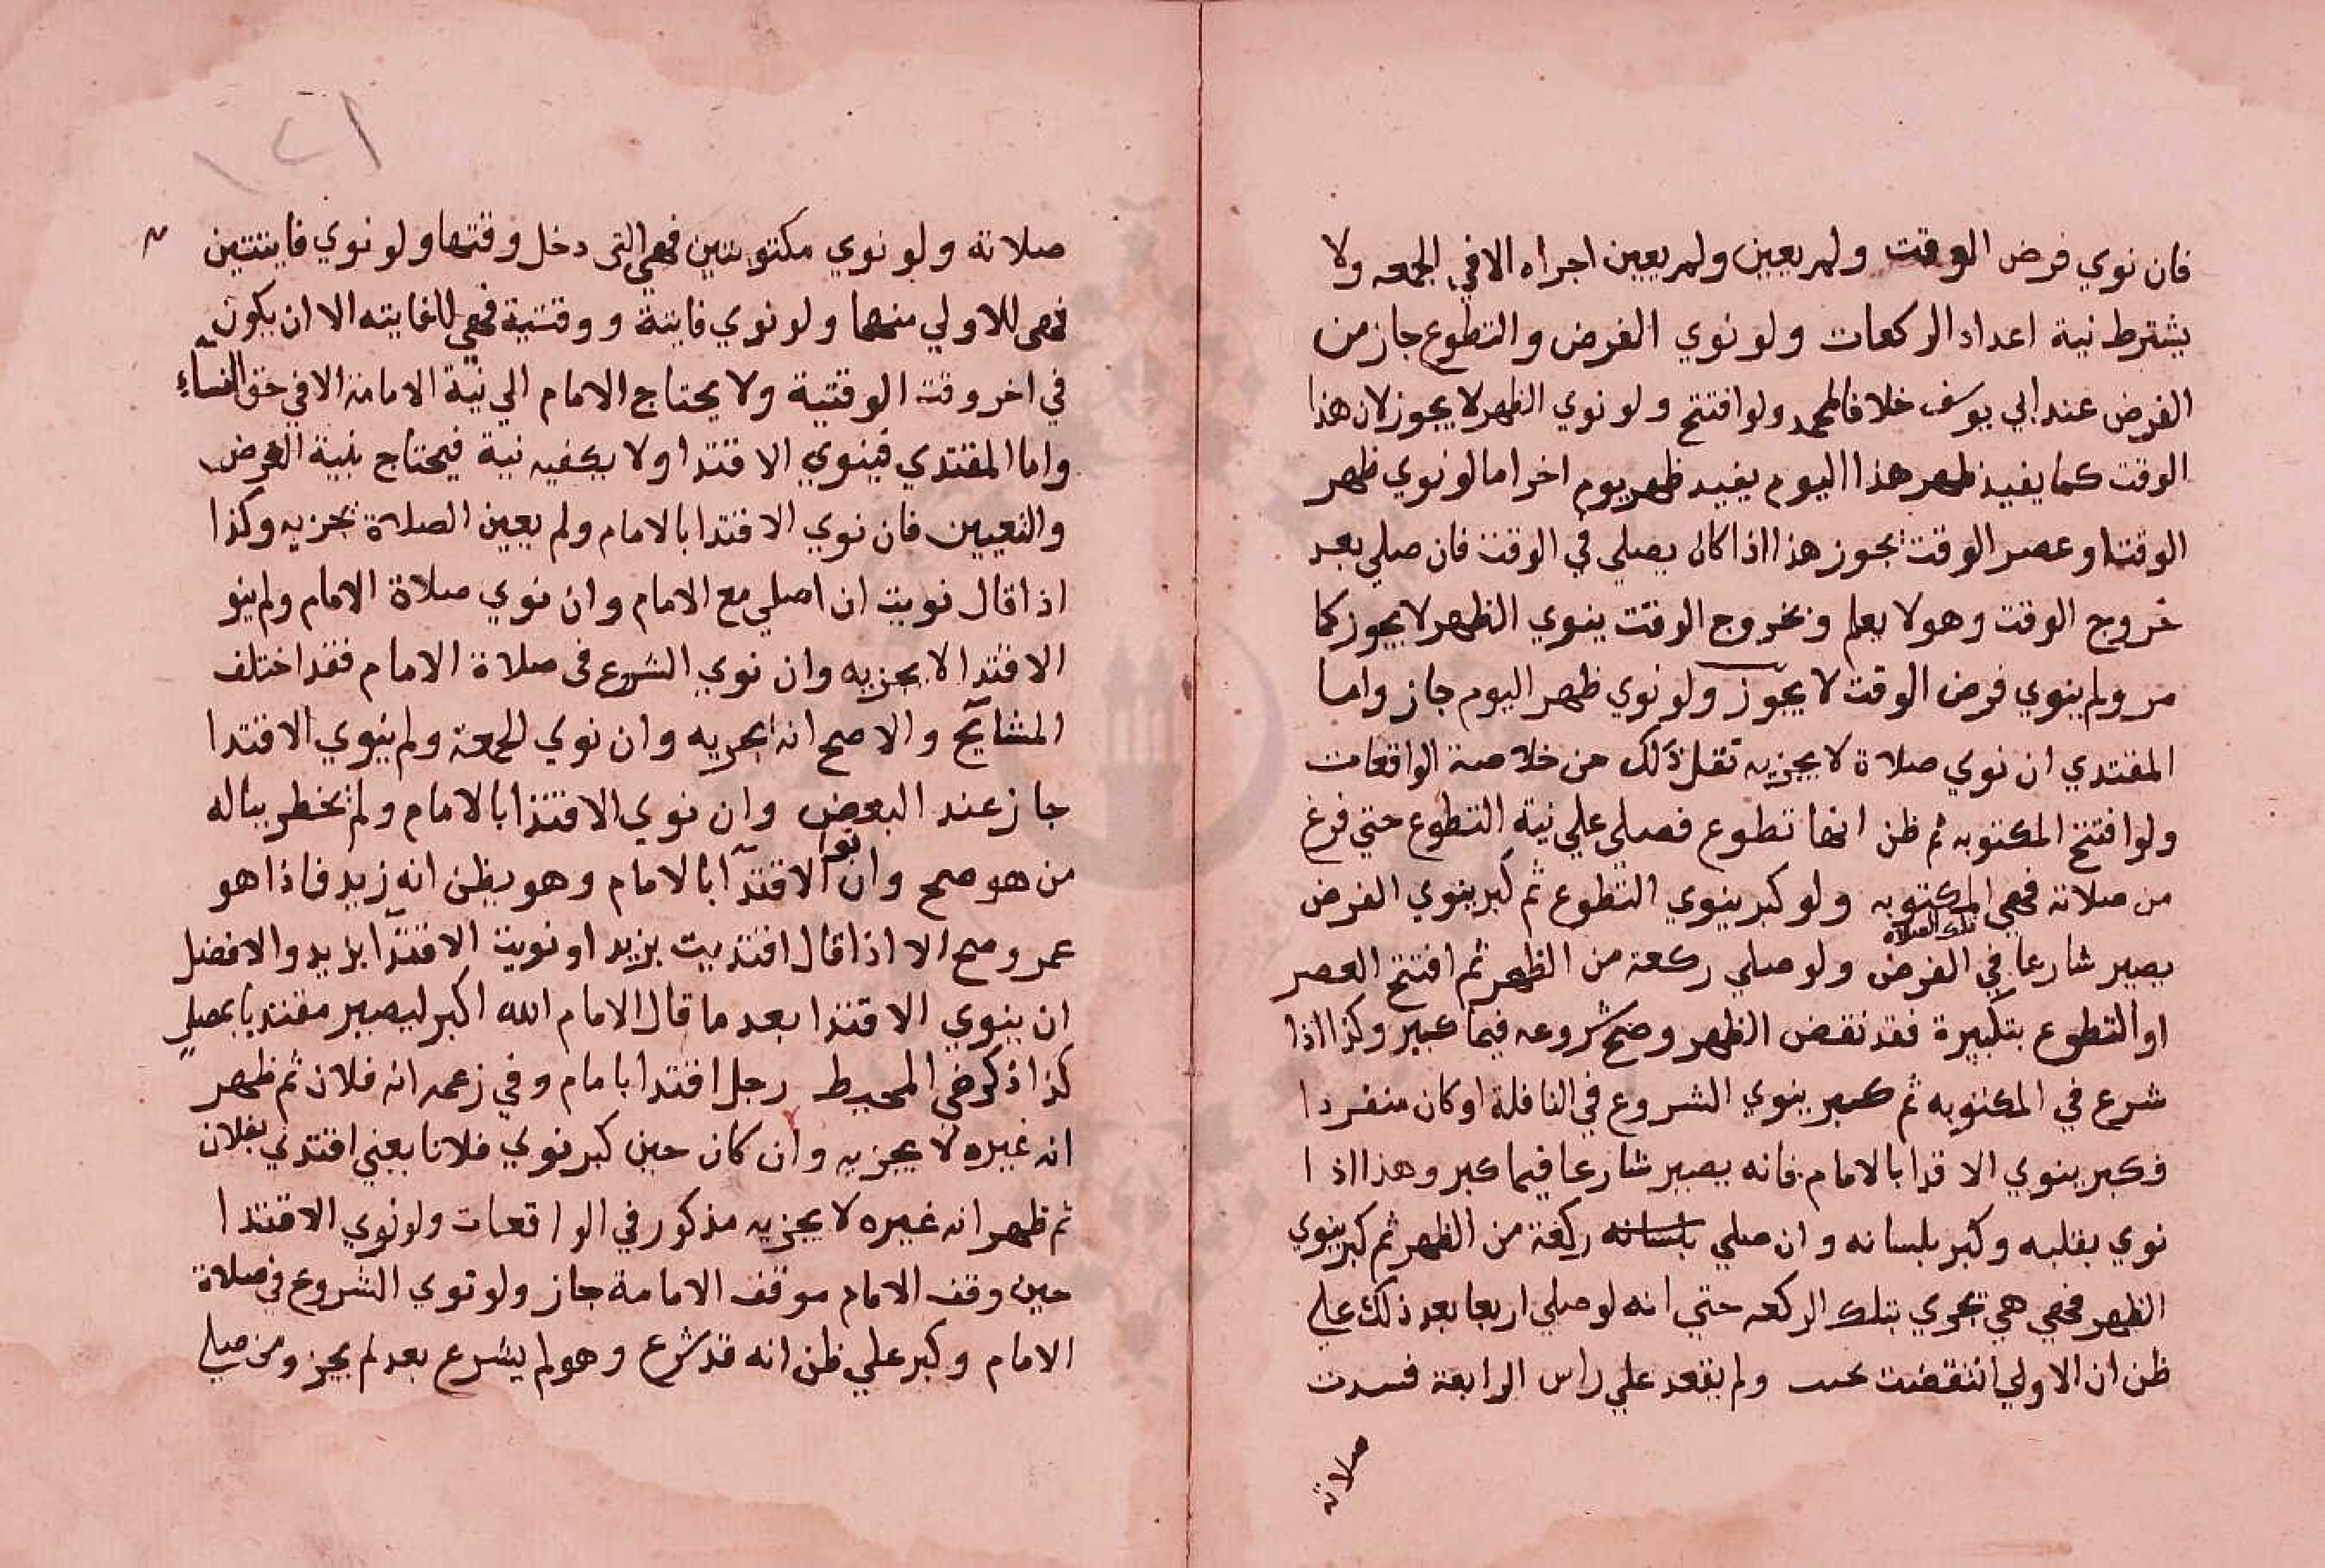 فان نوي فرض الوقت ولم يعين ولم يعين اجزاه الا في الجمعه ولا
يشترط نية اعداد الركعات ولو نوي الفرض والتطوع جاز من
الفرض عند ابي يوسف خلافا لمحمد ولو افتتح ولو نوي الظهر لا يجوز لان هذا
الوقت كما يفيد ظهر هذا اليوم يفيد ظهر يوم اخر اما لو نوي ظهر
الوقت او عصر الوقت يجوز هذا اذا كان يصلي في الوقت فان صلي بعد
خروج الوقت وهو لا يعلم وبخروج الوقت ينوي الظهر لا يجوز كما
مر ولم ينوي فرض الوقت لا يجوز ولو نوي ظهر اليوم جاز واما
المقتدي ان نوي صلاة لا يجزيه نقل ذلك من خلاصة الواقعات
ولو افتتح المكتوبه ثم ظن انها تطوع فصلي علي نية التطوع حتي فرغ
من صلاته فهي المكتوبه ولو كبر ينوي التطوع ثم كبر ينوي الفرض
تلك الصلاة
يصير شارعا في الفرض ولو صلي ركعة من الظهر ثم افتتح العصر
او التطوع بتكبيرة فقد نقض الظهر وصح شروعه فيما كبر وكذا اذا
شرع في المكتوبه ثم كبر ينوي الشروع في النافلة او كان منفردا
فكبر ينوي الاقدا بالامام فانه يصير شارعا فيما كبر وهذا اذا
نوي بقلبه وكبر بلسانه وان صلي بلسانه ركعة من الظهر ثم كبر ينوي
الظهر فهي هي تجري بتلك الركعه حتي انه لو صلي اربعا بعد ذلك علي
ظن ان الاولي انتقضت ولم يقعد علي راس الرابعة فسدت
صلاته
صلاته ولو نوي مكتوبتين فهي التي دخل وقتها ولو نوي فايتتين
فهي للاولي منهما ولو نوي فايتة ووقتية فهي للفايته الا ان يكون
في اخر وقت الوقتية ولا يحتاج الامام الي نية الامامة الا في حق النساء
واما المقتدي فينوي الاقتدا ولا يكفيه نية فيحتاج بنية الفرض
والتعيين فان نوي الاقتدا بالامام ولم يعين الصلاة يجزيه وكذا
اذا قال نويت ان اصلي مع الامام وان نوي صلاة الامام ولم ينو
الاقتدا لا يجزيه وان نوي الشرع في صلاة الامام فقد اختلف
المشايخ والاصح انه يجزيه وان نوي الجمعة ولم ينوي الاقتدا
جاز عند البعض وان نوي الاقتدا بالامام ولم يخطر بباله
من هو صح وان نوي الاقتدا بالامام وهو يظن انه زيد فاذا هو
عمرو صح الا اذا قال اقتديت بزيد او نويت الاقتدا بزيد والافضل
ان ينوي الاقتدا بعد ما قال الامام الله اكبر ليصير مقتديا بمصلٍ
كذا ذكر في المحيط رجل اقتدا بامام وفي زعمه انه فلان ثم ظهر
انه غيره لا يجزيه وان كان حين كبر نوي فلانا يعني اقتدي بفلان
ثم ظهر انه غيره لا يجزيه مذكور في الواقعات ولو نوي الاقتدا
حين وقف الامام موقف الامامة جاز ولو نوي الشروع في صلاة
الامام وكبر علي ظن انه قد شرع وهو لم يشرع بعد لم يجز ومن صلي